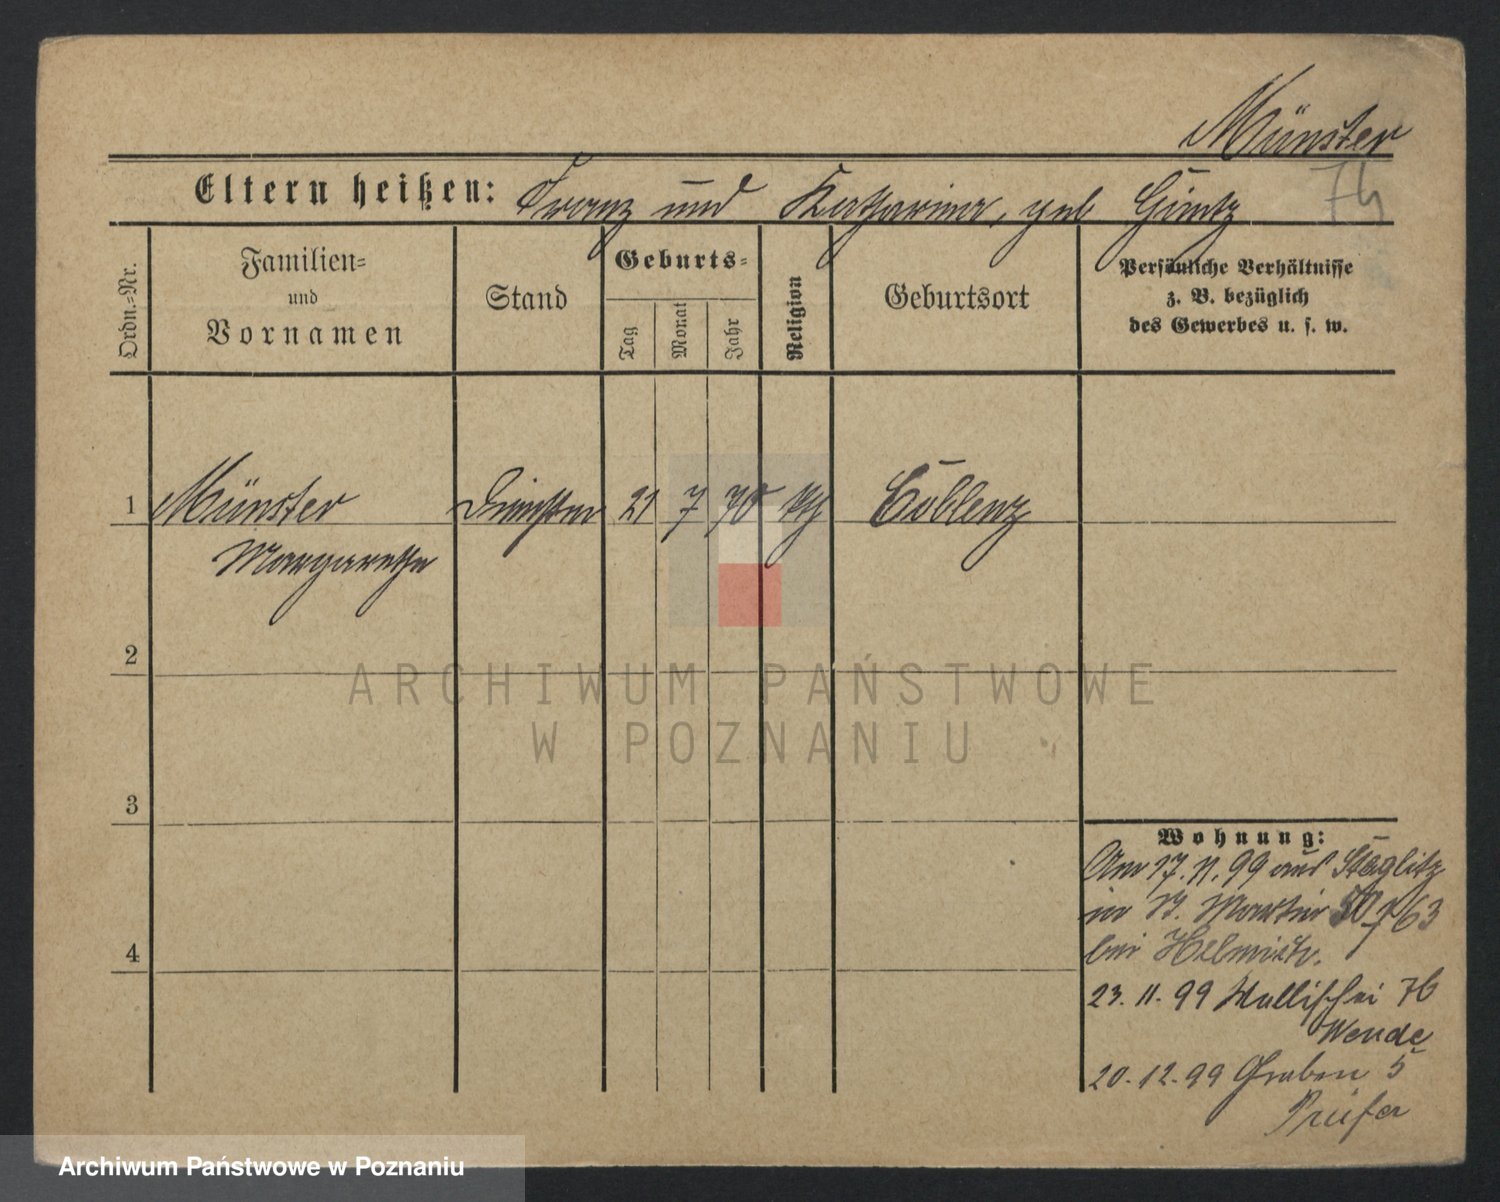 Münster
74
Eltern heißen: Franz und Katharina, geb Güntz
Ordn.=Nr.
Familien=
und
Vornamen
Stand
Geburts=
Tag
Monat
Jahr
Religion
Geburtsort
Persönliche Verhältnisse
z. B. bezüglich
des Gewerbes u. s. w.
1 Münster 21 7 70 kth Coblenz
Margarethe
2
3
4
Wohnung:
Am 17. 11. 99 aus Steglitz
in St. Martin 63
bei
23. 11. 99 Wallischei 76
Wende
20. 12. 99 Graben 5
Prüfer
ARCHIWUM PAŃSTWOWE
W POZNANIU
Archiwum Państwowe w Poznaniu